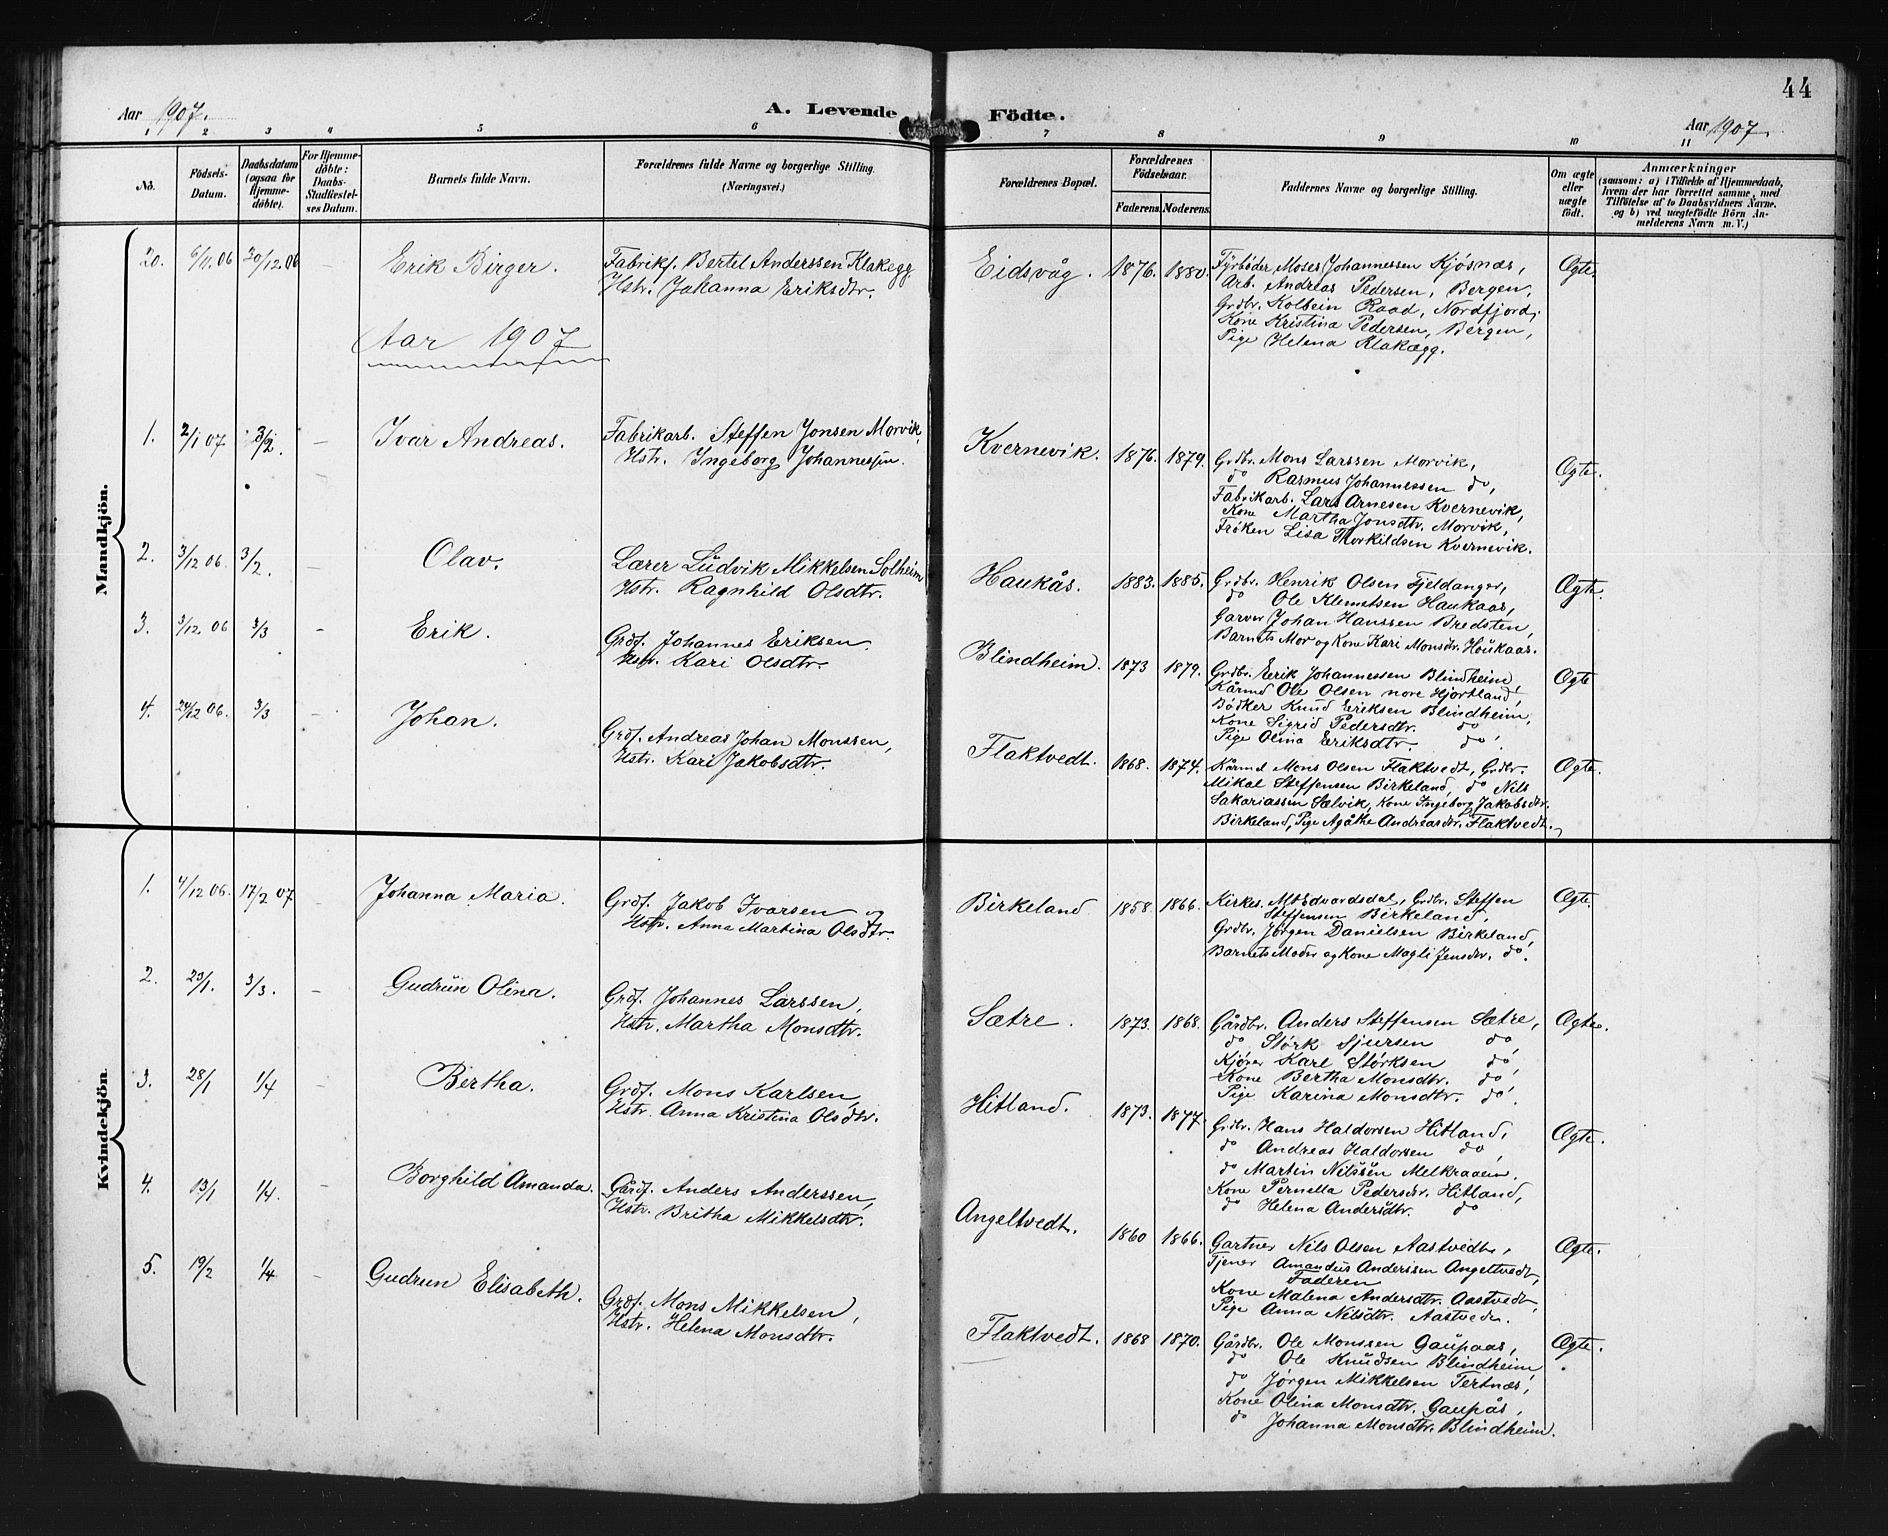 44
Aar 1907.
A. Levende Födte.
Aar 1907.
1 2 3 4 5 6 7 8 9 10 11
No.
Födsels-Datum.
Daabsdatum (ogsaa for Hjemme-döbte).
For Hjemme-döbte: Daabs-Stadfæstel-ses Datum.
Barnets fulde Navn.
Forældrenes fulde Navne og borgerlige Stilling.
(Næringsvei.)
Forældrenes Bopæl.
Forældrenes Födselsaar.
Faderens. Moderens.
Faddernes Navne og borgerlige Stilling.
Om ægte eller uægte födt.
Anmærkninger
(saasom: a) i Tilfælde af Hjemmedaab,
hvem der har forrettet samme, med
Tilföielse af to Daabsvidners Navne.
og b) ved uægtefödte Börn An-
melderens Navn m. V.)
Mandkjön.
20. 6/11.06 30/12.06 – Erik Birger. Fabrikf. Bertel Anderssen Klakegg
Hstr. Johanna Eriksdtr.
Eidsvåg. 1876. 1880.
Fyrböder Moses Johannessen Kjösnæs,
Arb. Andreas Pedersen, Bergen,
Grdbr. Kolbein Raad, Nordfjord,
Kone Kristina Pedersen, Bergen,
Pige Helena Klakegg.
Ægte.
Aar 1907
1. 2/1 07 3/2. – Ivar Andreas. Fabrikarb. Steffen Jonsen Morvik,
Hstr. Ingeborg Johannessen.
Kvernevik. 1876. 1879.
Grdbr. Mons Larssen Morvik,
do Rasmus Johannessen do,
Fabrikarb. Lars Arnesen Kvernevik,
Kone Martha Jonsdtr. Morvik,
Fröken Lisa Thorkildsen Kvernevik.
Ægte.
2. 3/12 06. 3/2. – Olav. Lærer Ludvik Mikkelsen Solheim
Hstr. Ragnhild Olsdtr.
Haukås. 1883. 1885.
Grdbr. Henrik Olsen Fjeldanger,
do Ole Klemetsen Haukaas,
Garver Johan Hanssen Bredsten,
Barnets Mor og Kone Kari Monsdr. Houkaas.
Ægte.
3. 3/12. 06 3/3 – Erik. Grdf. Johannes Eriksen
Hstr. Kari Olsdtr.
Blindheim. 1873 1879.
Grdbr. Erik Johannessen Blindheim,
Kårmd Ole Olsen nore Hjortland,
Bödker Knud Eriksen Blindheim,
Kone Sigrid Pedersdtr. do,
Pige Olina Eriksdtr. do.
Ægte
4. 24/12 06. 3/3 – Johan. Grdf. Andreas Johan Monssen,
Hstr. Kari Jakobsdtr.
Flaktvedt. 1868. 1874.
Kårmd Mons Olsen Flaktvedt, Grdbr.
Mikal Steffensen Birkeland, do Nils
Sakariassen Sælvik, Kone Ingeborg Jakobsdtr.
Birkeland, Pige Agåthe Andreasdtr. Flaktvedt.
Ægte.
Kvindekjön.
1. 4/12 06. 17/2 07 – Johanna Maria. Grdf. Jakob Ivarsen og
Hstr. Anna Martina Olsdtr.
Birkeland 1858. 1866.
Kirkes. M. Edvardsdal, Grdbr. Steffen
Steffensen Birkeland,
Grdbr. Jörgen Danielsen Birkeland,
Barnets Moder og Kone Magli Jensdtr. do.
Ægte.
2. 23/1. 3/3. – Gudrun Olina. Grdf. Johannes Larssen,
Hstr. Martha Monsdtr.
Sætre. 1873. 1868.
Gårdbr. Anders Steffensen Sætre,
do Störk Sjursen do,
Kjörer Karl Störksen do,
Kone Bertha Monsdtr. do,
Pige Karina Monsdtr. do.
Ægte.
3. 28/1 1/4 – Bertha. Grdf. Mons Karlsen,
Hstr. Anna Kristina Olsdtr.
Hitland. 1873. 1877.
Grdbr. Hans Haldorsen Hitland,
do Andreas Haldorsen do,
do Martin Nilssen Melkraaen,
Kone Pernella Pedersdr. Hitland,
do Helena Andersdtr. do
Ægte.
4. 13/1 1/4. – Borghild Amanda. Gårdf. Anders Anderssen,
Hstr. Britha Mikkelsdtr.
Angeltvedt. 1860 1866.
Gartner Nils Olsen Aastvedt,
Tjener Amandus Anderssen Angeltvedt,
Faderen
Kone Malena Andersdtr. Aastvedt,
Pige Anna Nilsdtr. Aastvedt.
Ægte.
5. 19/2 1/4 – Gudrun Elisabeth. Grdf. Mons Mikkelsen,
Hstr. Helena Monsdtr.
Flaktvedt. 1868 1870.
Gårdbr. Ole Monssen Gaupaas,
do Ole Knudsen Blindheim
do Jörgen Mikkelsen Tertnæs,
Kone Olina Monsdtr. Gaupås,
do Johanna Monsdtr. Blindheim.
Ægte.